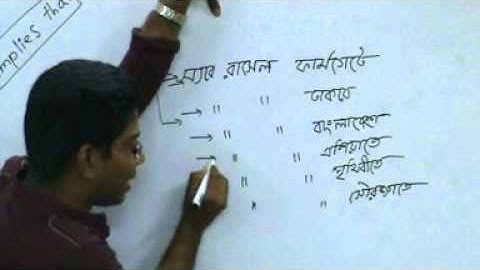 implies tha
স্যার রাসেল ফার্মগেটে
→ " " ঢাকায়
→ " " বাংলাদেশে
→ " " এশিয়াতে
" " পৃথিবীতে
" " সৌরজগতে